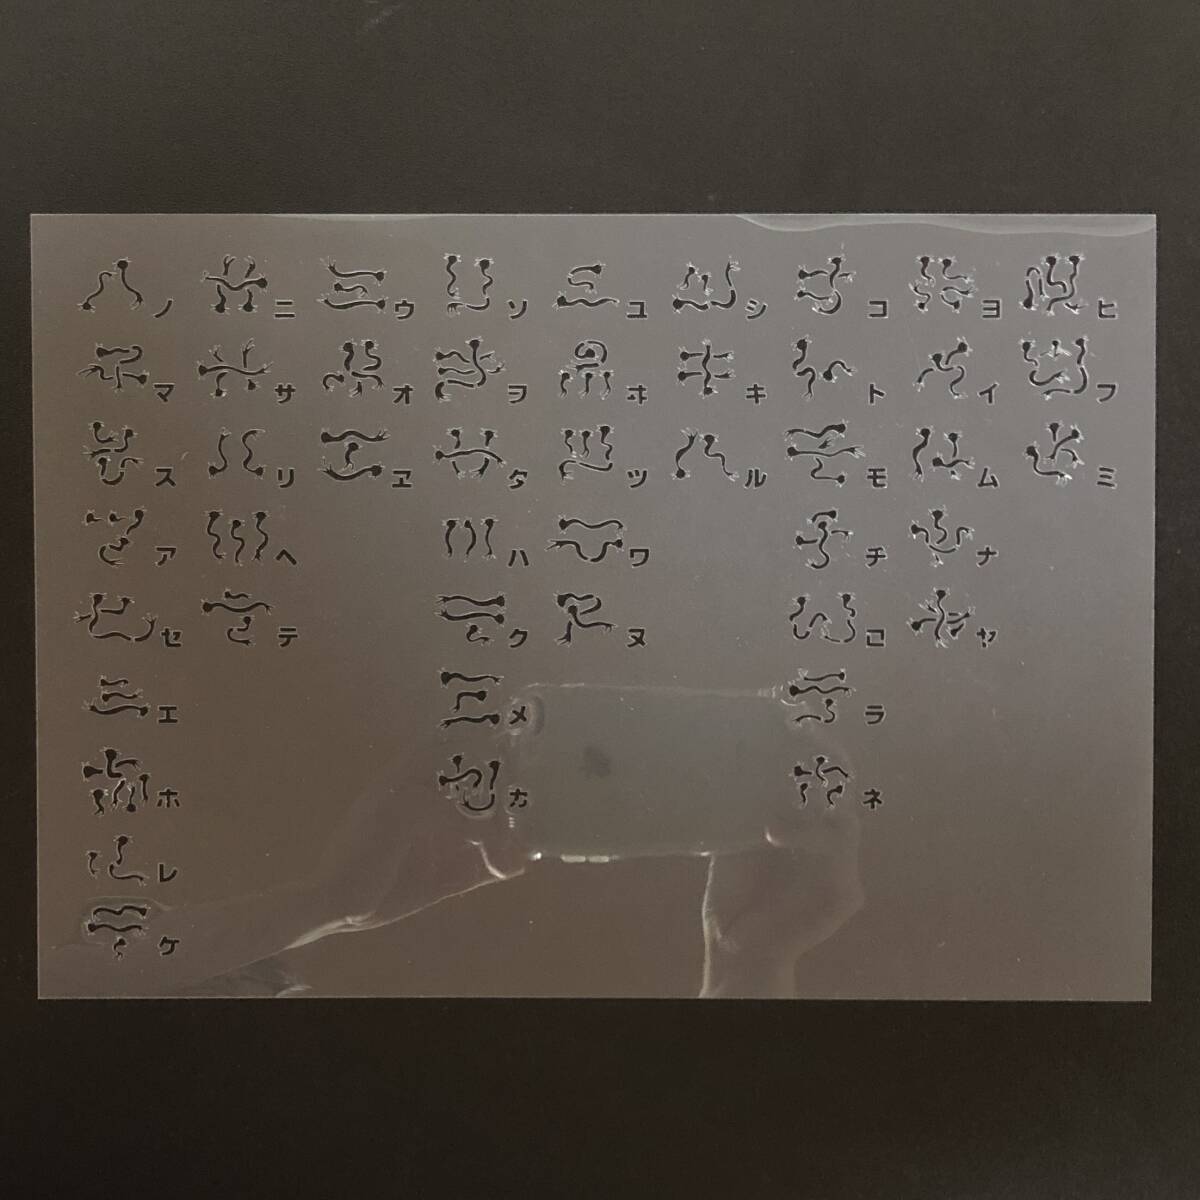 ノ ニ ウ ソ ユ シ コ ヨ ヒ
マ サ オ ヲ ヰ キ ト イ フ
ス リ ヱ タ ツ ル モ ム ミ
ア ヘ ハ ワ チ ナ
セ テ ク ヌ ロ ヤ
エ メ ラ
ホ カ ネ
レ
ケ